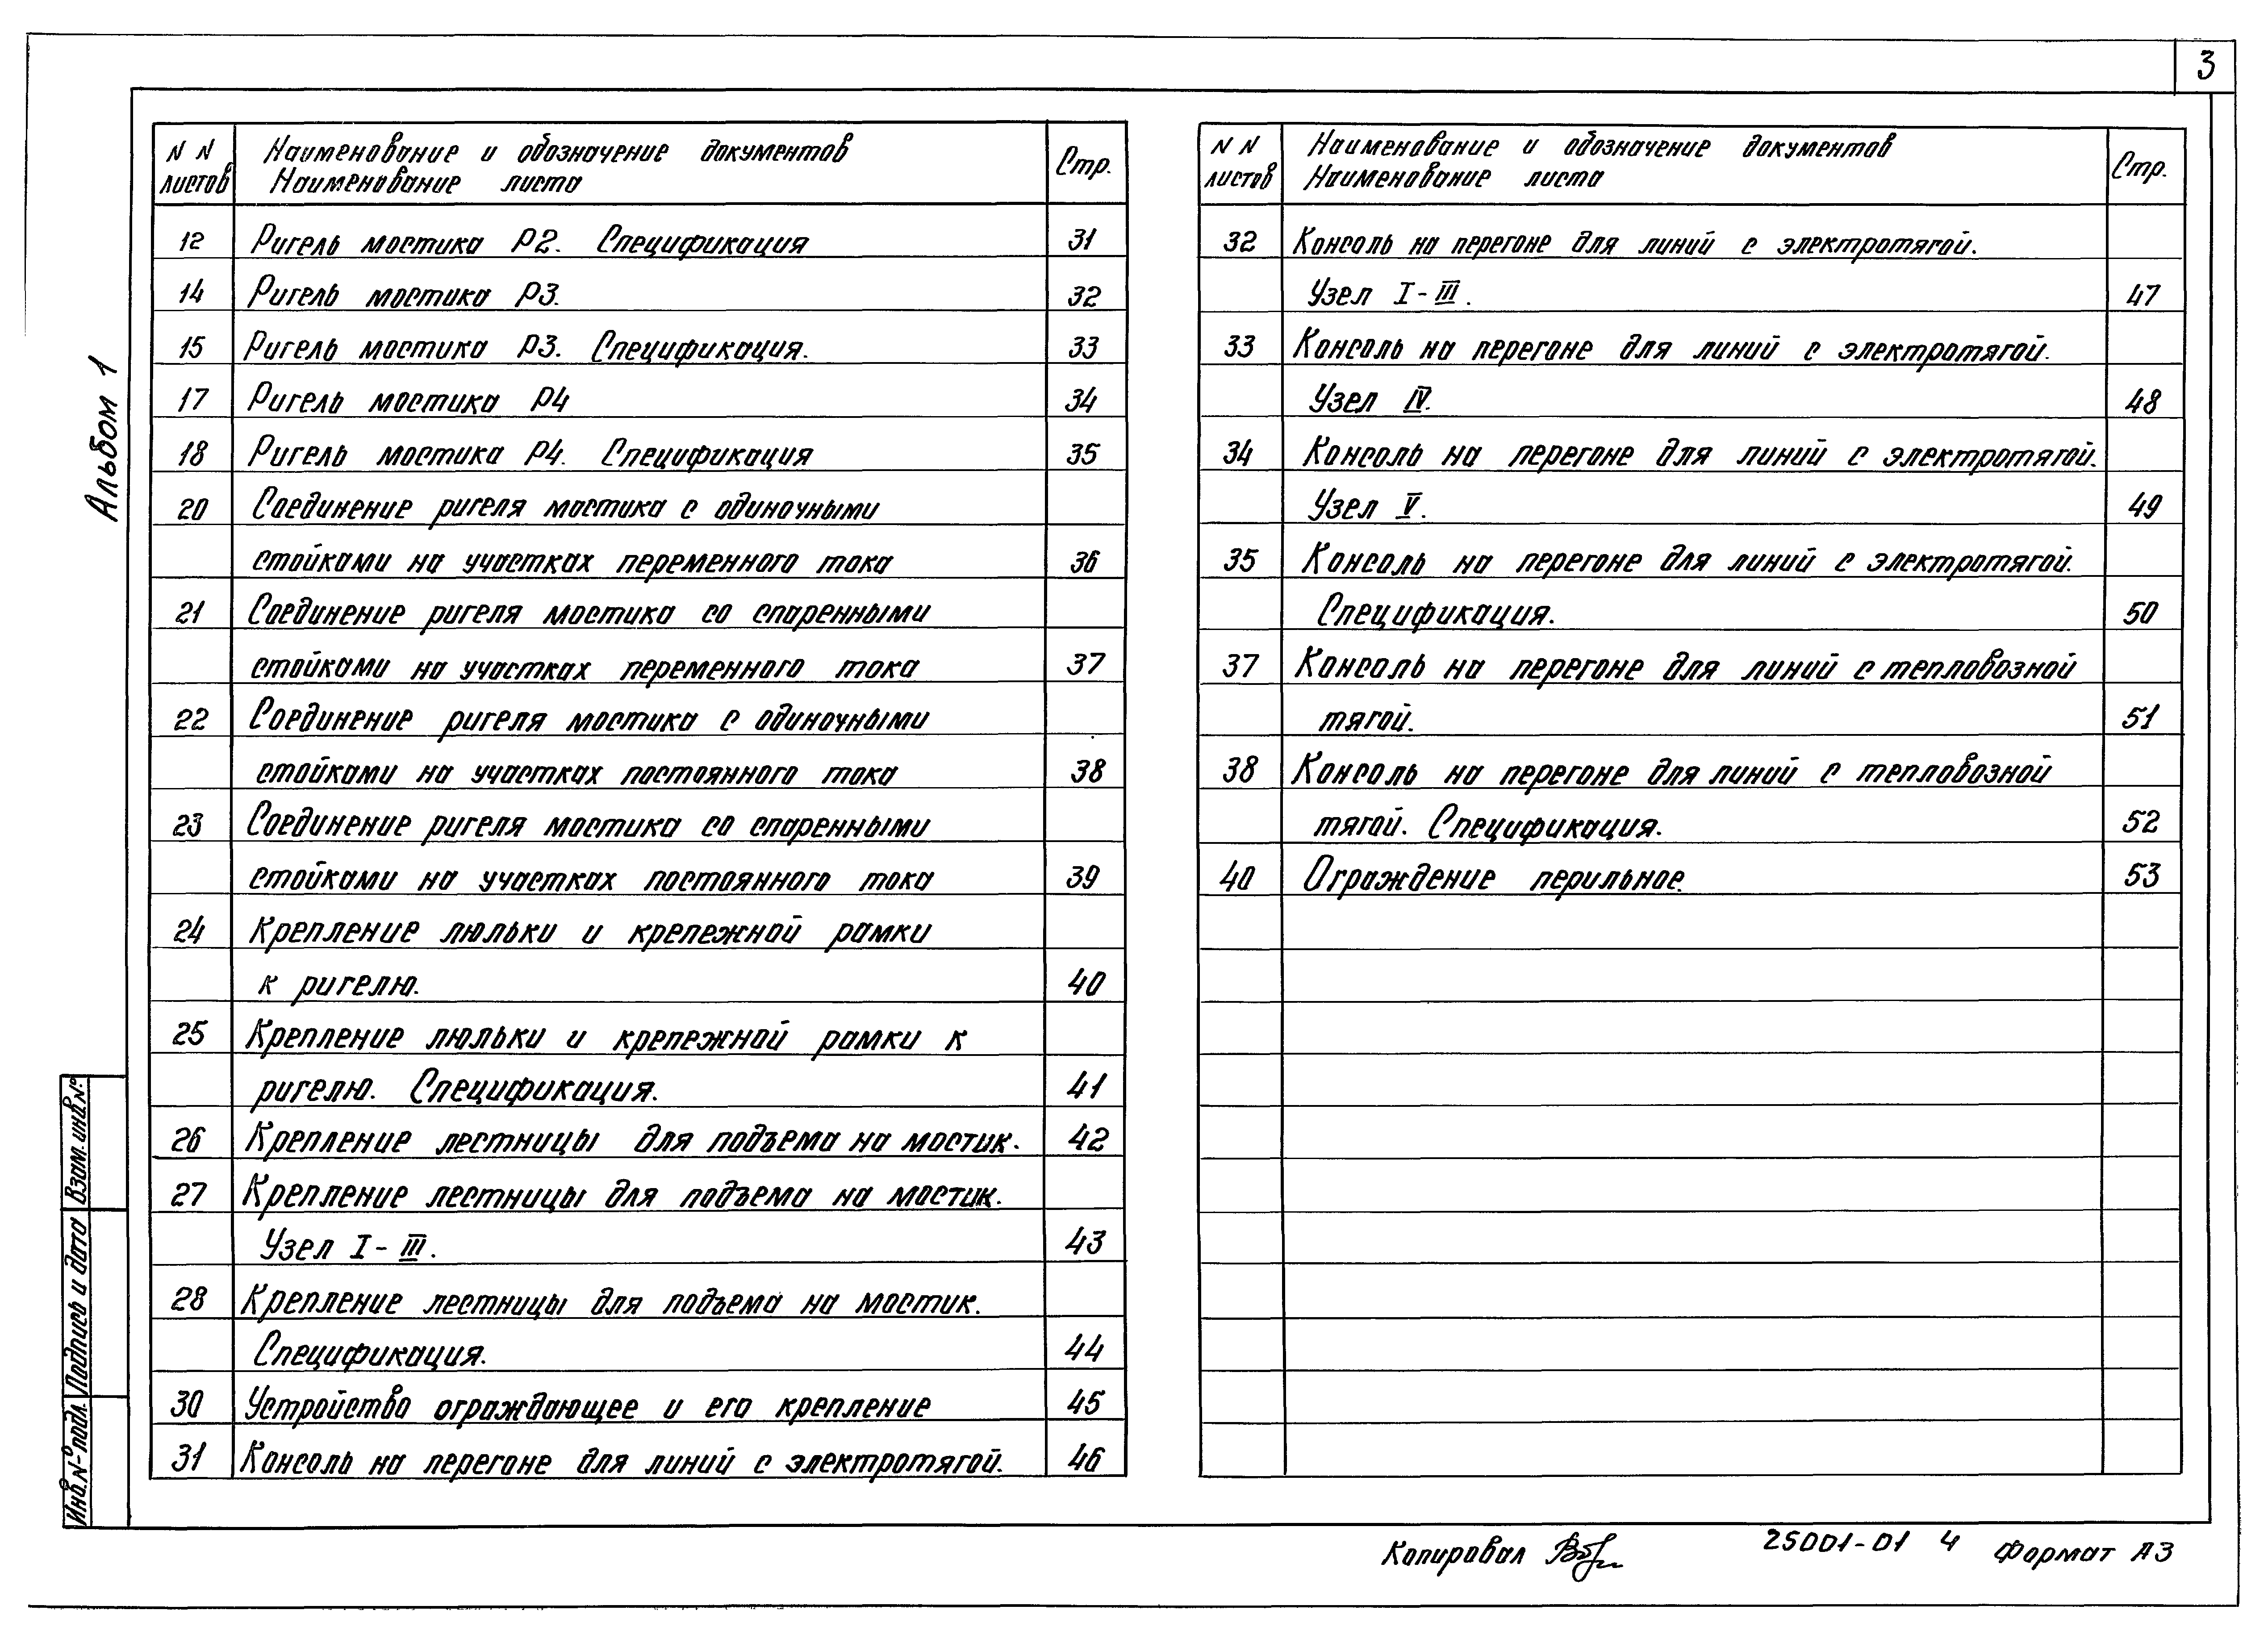 3
Альбом 1
N N листов
Наименование и обозначение документов
Наименование листа
Стр.
12 Ригель мостика Р2. Спецификация 31
14 Ригель мостика Р3. 32
15 Ригель мостика Р3. Спецификация. 33
17 Ригель мостика Р4 34
18 Ригель мостика Р4. Спецификация 35
20 Соединение ригеля мостика с одиночными
стойками на участках переменного тока 36
21 Соединение ригеля мостика со спаренными
стойками на участках переменного тока 37
22 Соединение ригеля мостика с одиночными
стойками на участках постоянного тока 38
23 Соединение ригеля мостика со спаренными
стойками на участках постоянного тока 39
24 Крепление люльки и крепежной рамки
к ригелю. 40
25 Крепление люльки и крепежной рамки к
ригелю. Спецификация. 41
26 Крепление лестницы для подъема на мостик. 42
27 Крепление лестницы для подъема на мостик.
Узел I-III. 43
28 Крепление лестницы для подъема на мостик.
Спецификация. 44
30 Устройство ограждающее и его крепление 45
31 Консоль на перегоне для линий с электротягой. 46
N N листов
Наименование и обозначение документов
Наименование листа
Стр.
32 Консоль на перегоне для линий с электротягой.
Узел I-III. 47
33 Консоль на перегоне для линий с электротягой.
Узел IV. 48
34 Консоль на перегоне для линий с электротягой.
Узел V. 49
35 Консоль на перегоне для линий с электротягой.
Спецификация. 50
37 Консоль на перегоне для линий с тепловозной
тягой. 51
38 Консоль на перегоне для линий с тепловозной
тягой. Спецификация. 52
40 Ограждение перильное. 53
Взам. инв. №
Подпись и дата
Инв. № подл.
Копировал 25001-01 4 Формат А3